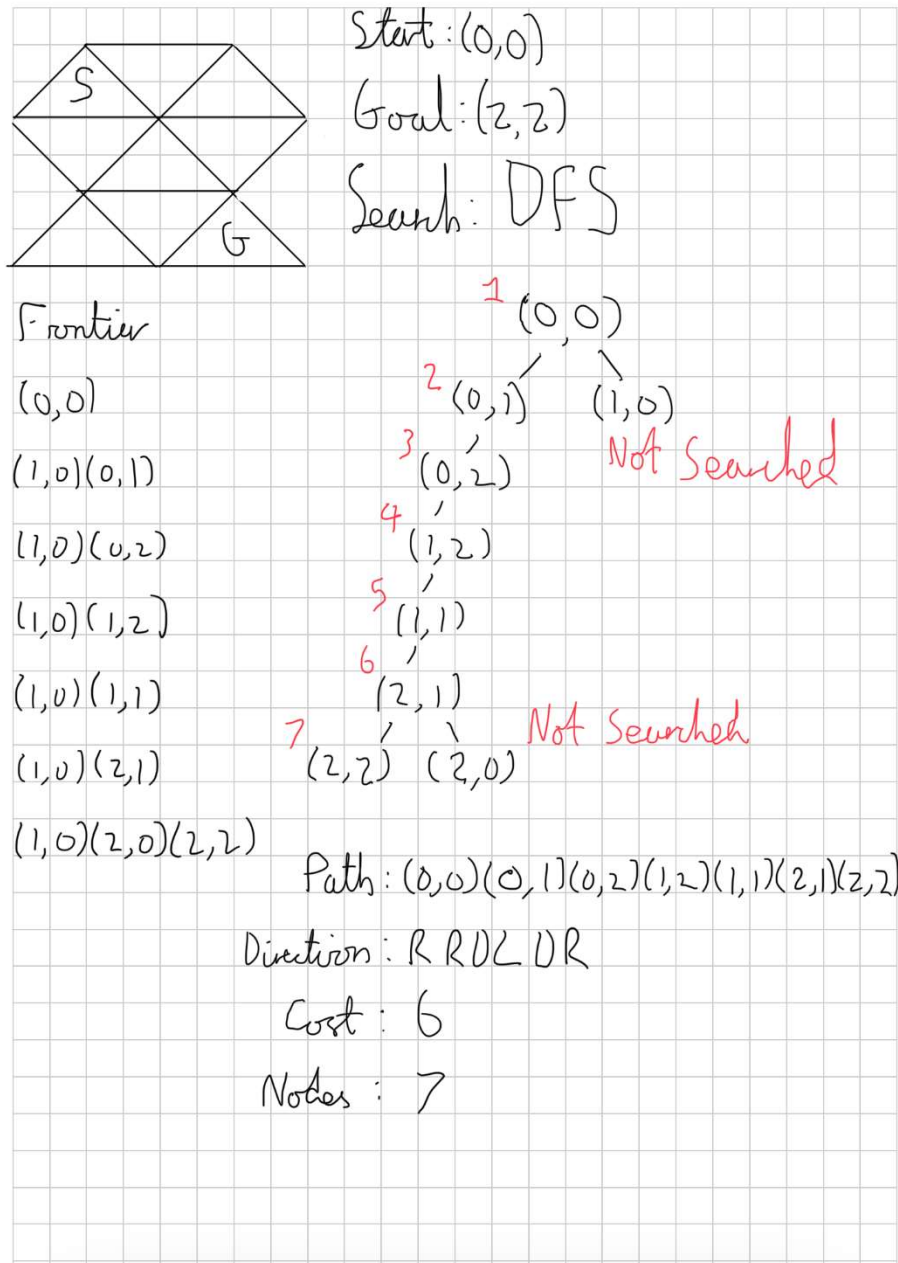 S
G
Start: (0,0)
Goal: (2,2)
Search: DFS
Frontier
(0,0)
(1,0)(0,1)
(1,0)(0,2)
(1,0)(1,2)
(1,0)(1,1)
(1,0)(2,1)
(1,0)(2,0)(2,2)
1 (0,0)
2 (0,1) (1,0)
Not Searched
3 (0,2)
4 (1,2)
5 (1,1)
6 (2,1)
Not Searched
7 (2,2) (2,0)
Path: (0,0)(0,1)(0,2)(1,2)(1,1)(2,1)(2,2)
Direction: RRDLDR
Cost: 6
Nodes: 7